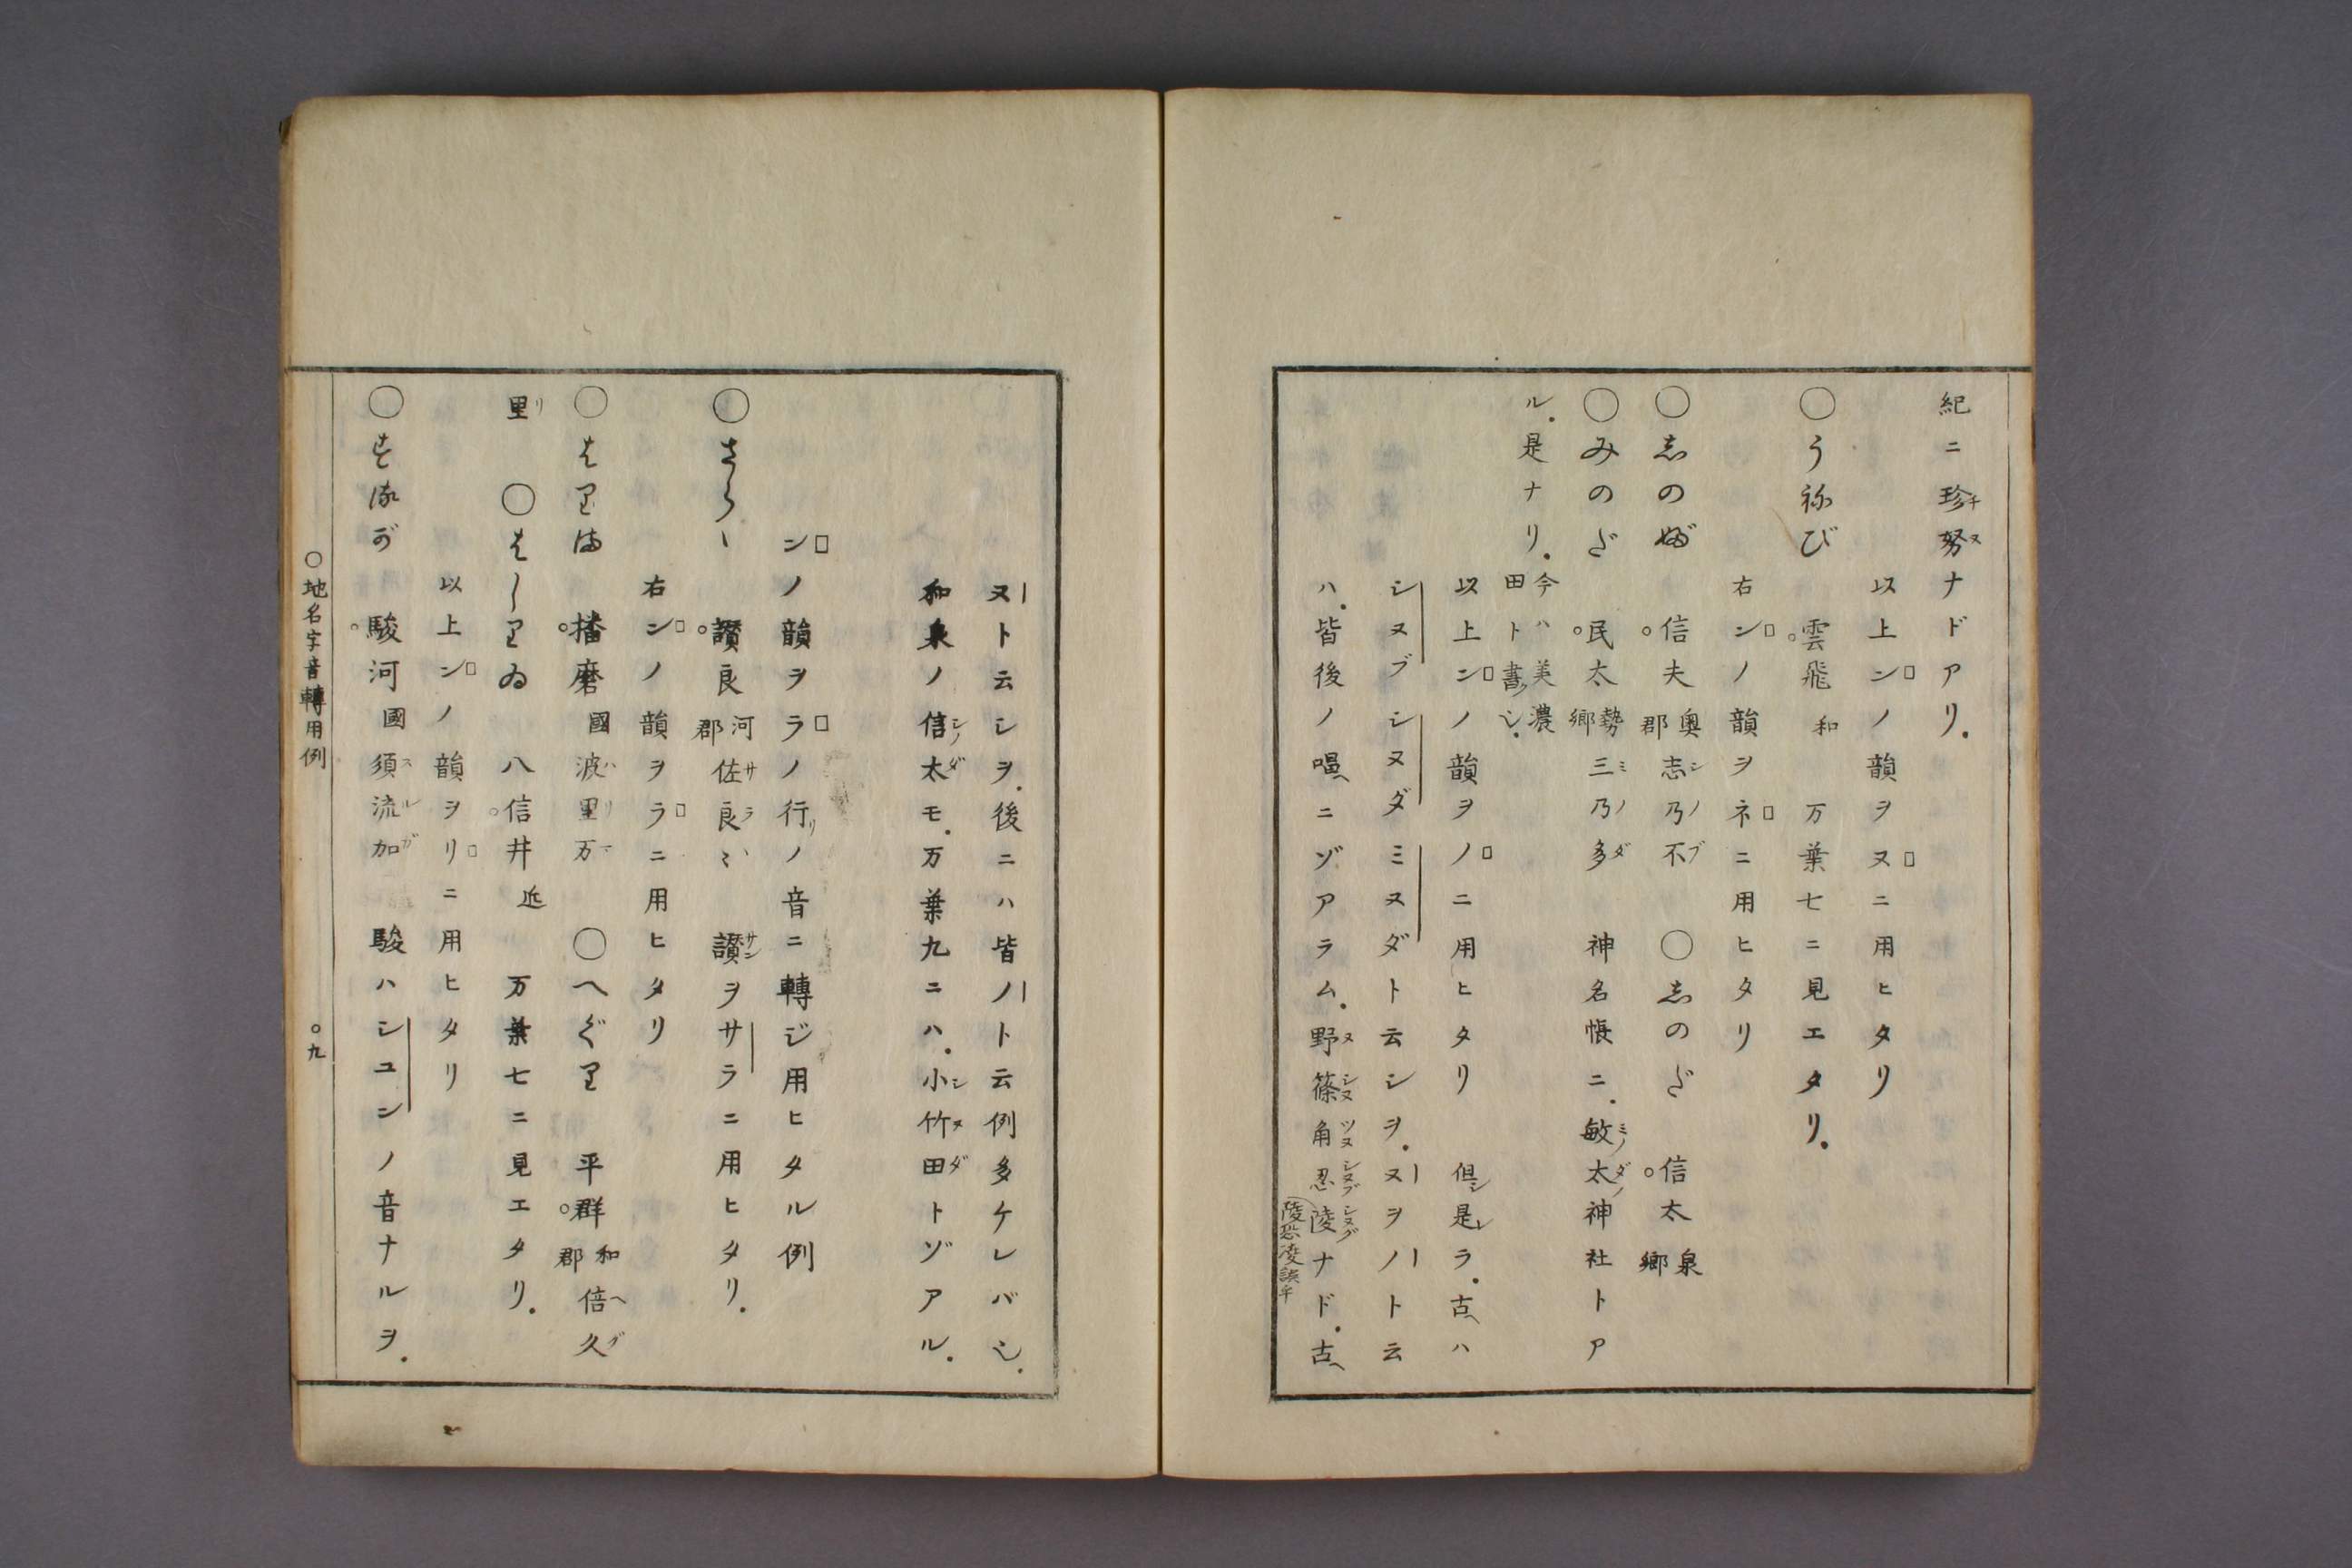 紀ニ珍努ナドアリ.
以上ンノ韻ヲヌニ用ヒタリ
○う祢び 雲飛 和 万葉七ニ見エタリ.
右ンノ韻ヲネニ用ヒタリ
○志のぶ 信夫 奥郡 志乃不 ○志のだ 信太 泉郷
○みのだ 民太 勢郷 三乃多 神名帳ニ.敏太神社トア
ル.是ナリ. 今ハ美濃田ト書クシ.
以上ンノ韻ヲノニ用ヒタリ 但シ是レラ.古ヘハ
シヌブシヌダミヌダト云シヲ.ヌヲノト云
ハ.皆後ノ唱ヘニゾアラム.野篠角忍陵ナド.古ヘ
陵恐凌誤乎
ヌト云シヲ.後ニハ皆ノト云例多ケレバシ.
和泉ノ信太モ.万葉九ニハ.小竹田トゾアル.
ンノ韻ヲラノ行リノ音ニ轉ジ用ヒタル例
○さらゝ 讃良 河郡 佐良〻 讃ヲサラニ用ヒタリ.
右ンノ韻ヲラニ用ヒタリ
○はりま 播磨 國 波里万 ○へぐり 平群 和郡 倍久
里 ○はしりゐ 八信井 近 万葉七ニ見エタリ.
以上ンノ韻ヲリニ用ヒタリ
○するが 駿河 國 須流加 駿ハシユンノ音ナルヲ.
○地名字音轉用例 ○九